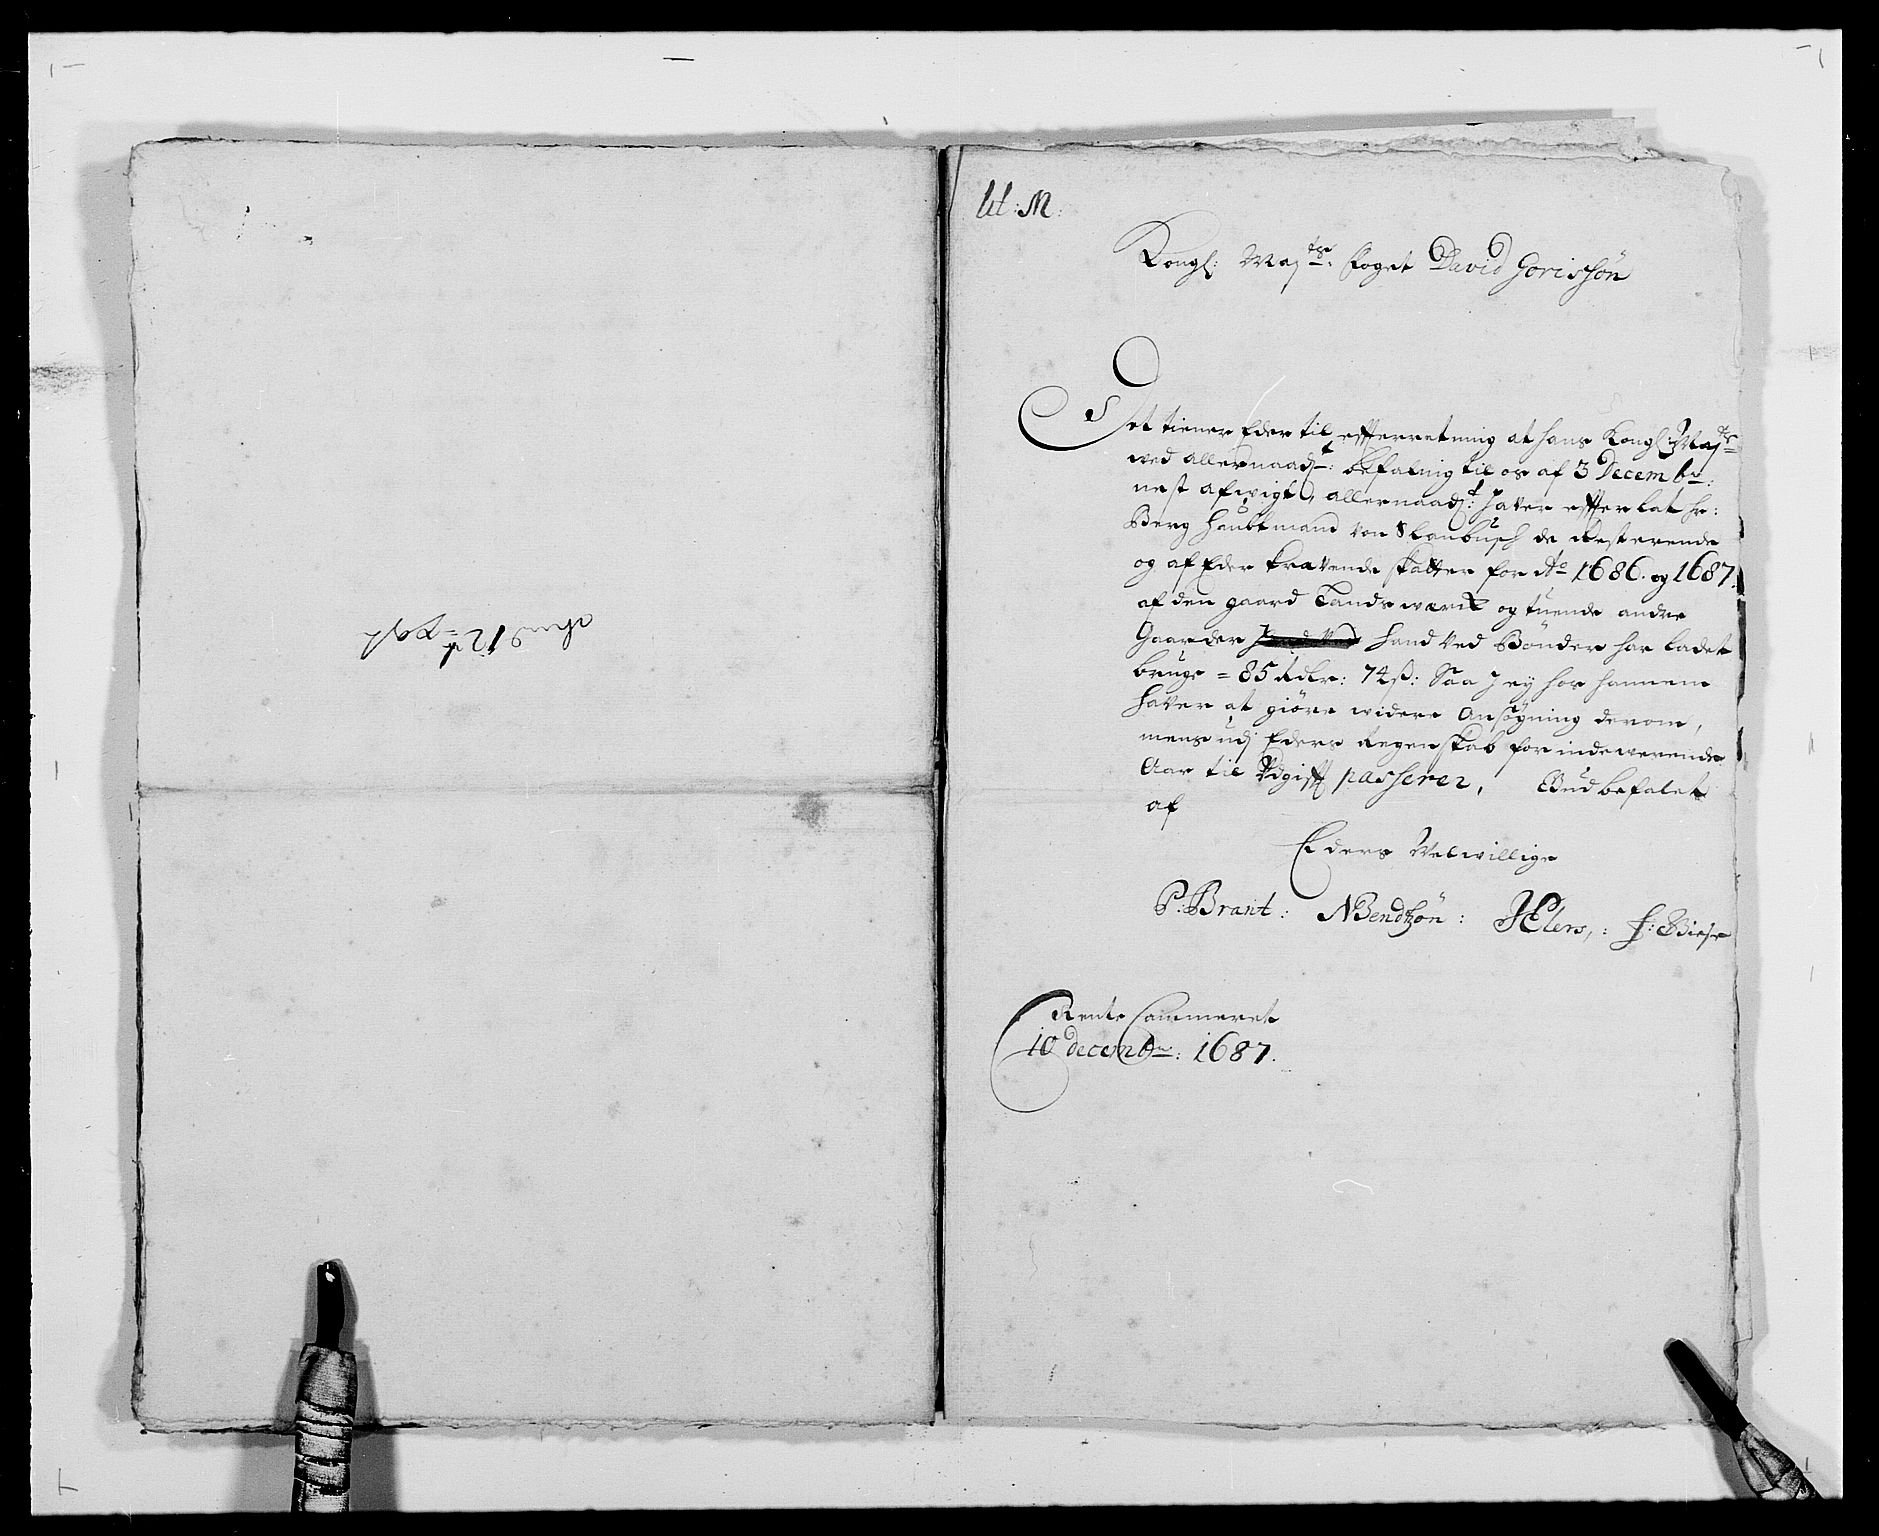 lit: M:
Kongl: Maj.ts: foget David Gorissøn
Det tiener Eder til efferretning at hans Kongl: Maj.ts
ved allernaad.t: befalning til os af 3 Decembr:
nest afvigt, allernaad.t: haver effterlat hr:
Berg Haubtmand von Slanbusch de Resterende
og af Eder krævende skatter for Ao 1686. og 1687.
af den gaard Tandsværck og tuende andre
Gaarder hand ved Bønder har ladet
bruge = 85 Rdlr: 74 ß: Saa I ej hos hannem
haver at giøre widere Ansøgning derom,
mens udj Eders Regenskab for indeværende
Aar til Udgifft passerer, Budbefalet
af
Eders Velwillige
P: Brant: NBendtzøn: HElers,: f: Biese
Rente Cammeret
10 decembr: 1687.